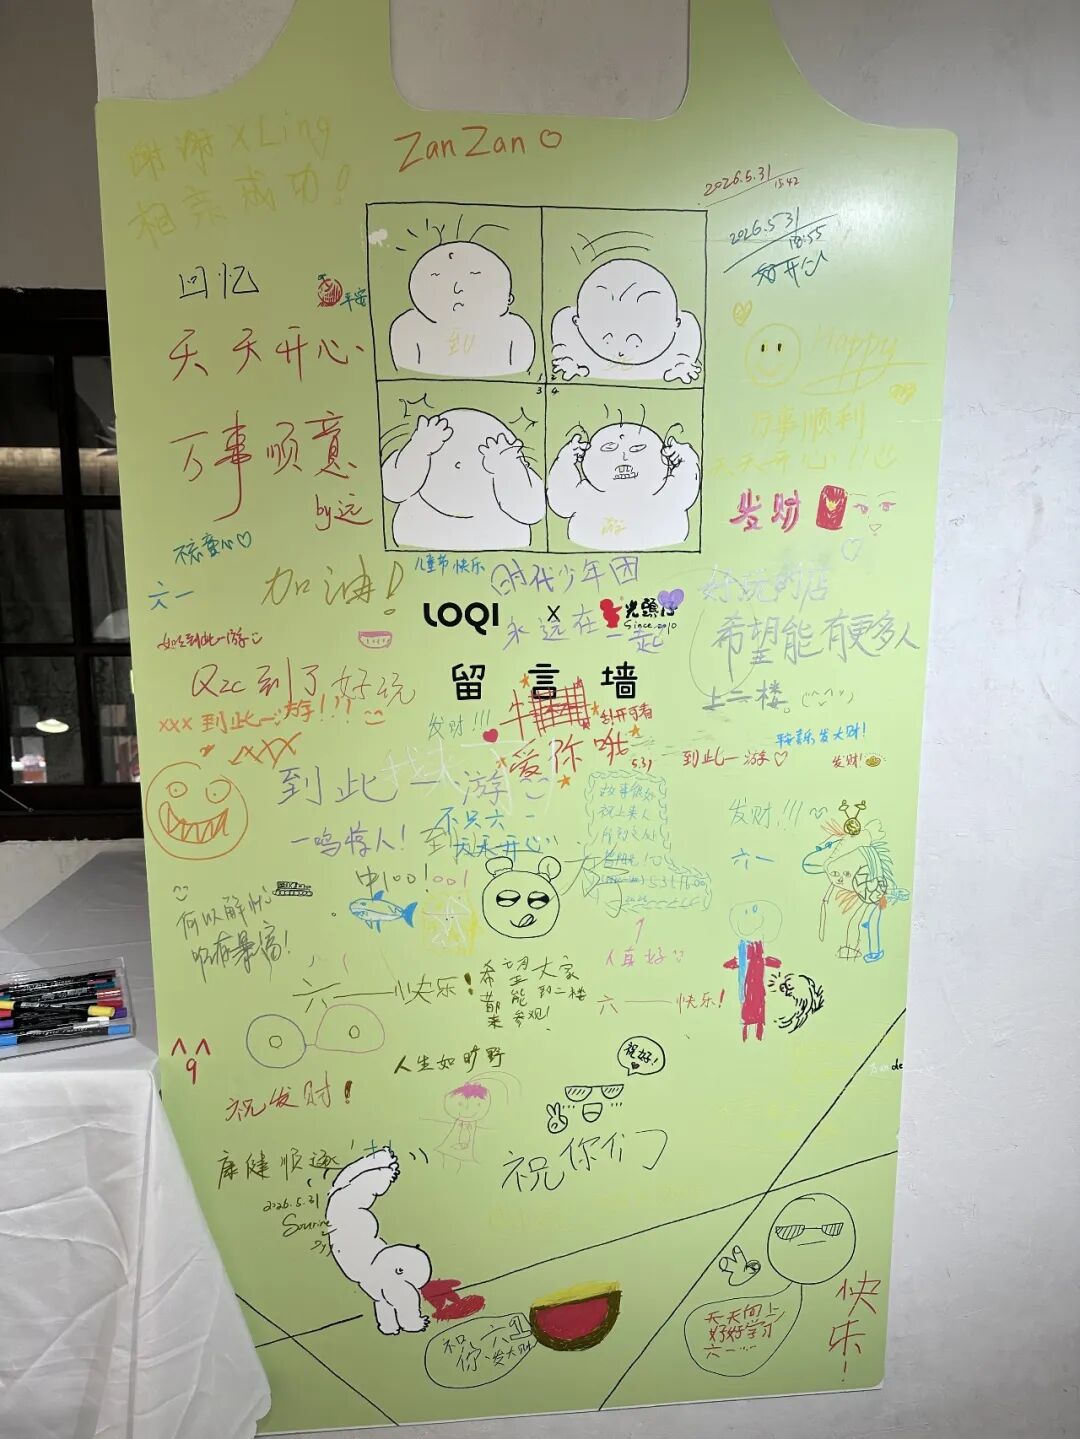 谢谢XLing
相亲成功!
ZanZan
2026.5.31
15:42
2026.5.31
18:55
好开心
回忆
平安
天天开心
万事顺意
by远
Happy
万事顺利
天天开心!!
发财
1
2
3
4
到
游
六一
加油!
儿童节快乐
时代少年团
永远在一起
LOQI × 光頭仔
Since.2010
留言墙
好玩的店
希望能有更多人
上二楼。
到此一游
Qzc到了好玩
xxx到此一游!!!
XXX
发财!!!
牛
爱你哦
5.31
到此一游
平安喜乐发大财!
发财!
到此一游
一鸣惊人!
不只六一
天天开心
中100!001
发财!!!
六一
何以解忧
唯有暴富!
六一快乐!
希望大家
都能到二楼
来参观!
人真好
六一快乐!
人生如旷野
祝好!
祝发财!
祝你们
康健顺遂
2026.5.31
祝六一
你发大财
天天向上
好好学习
六一……
快乐!